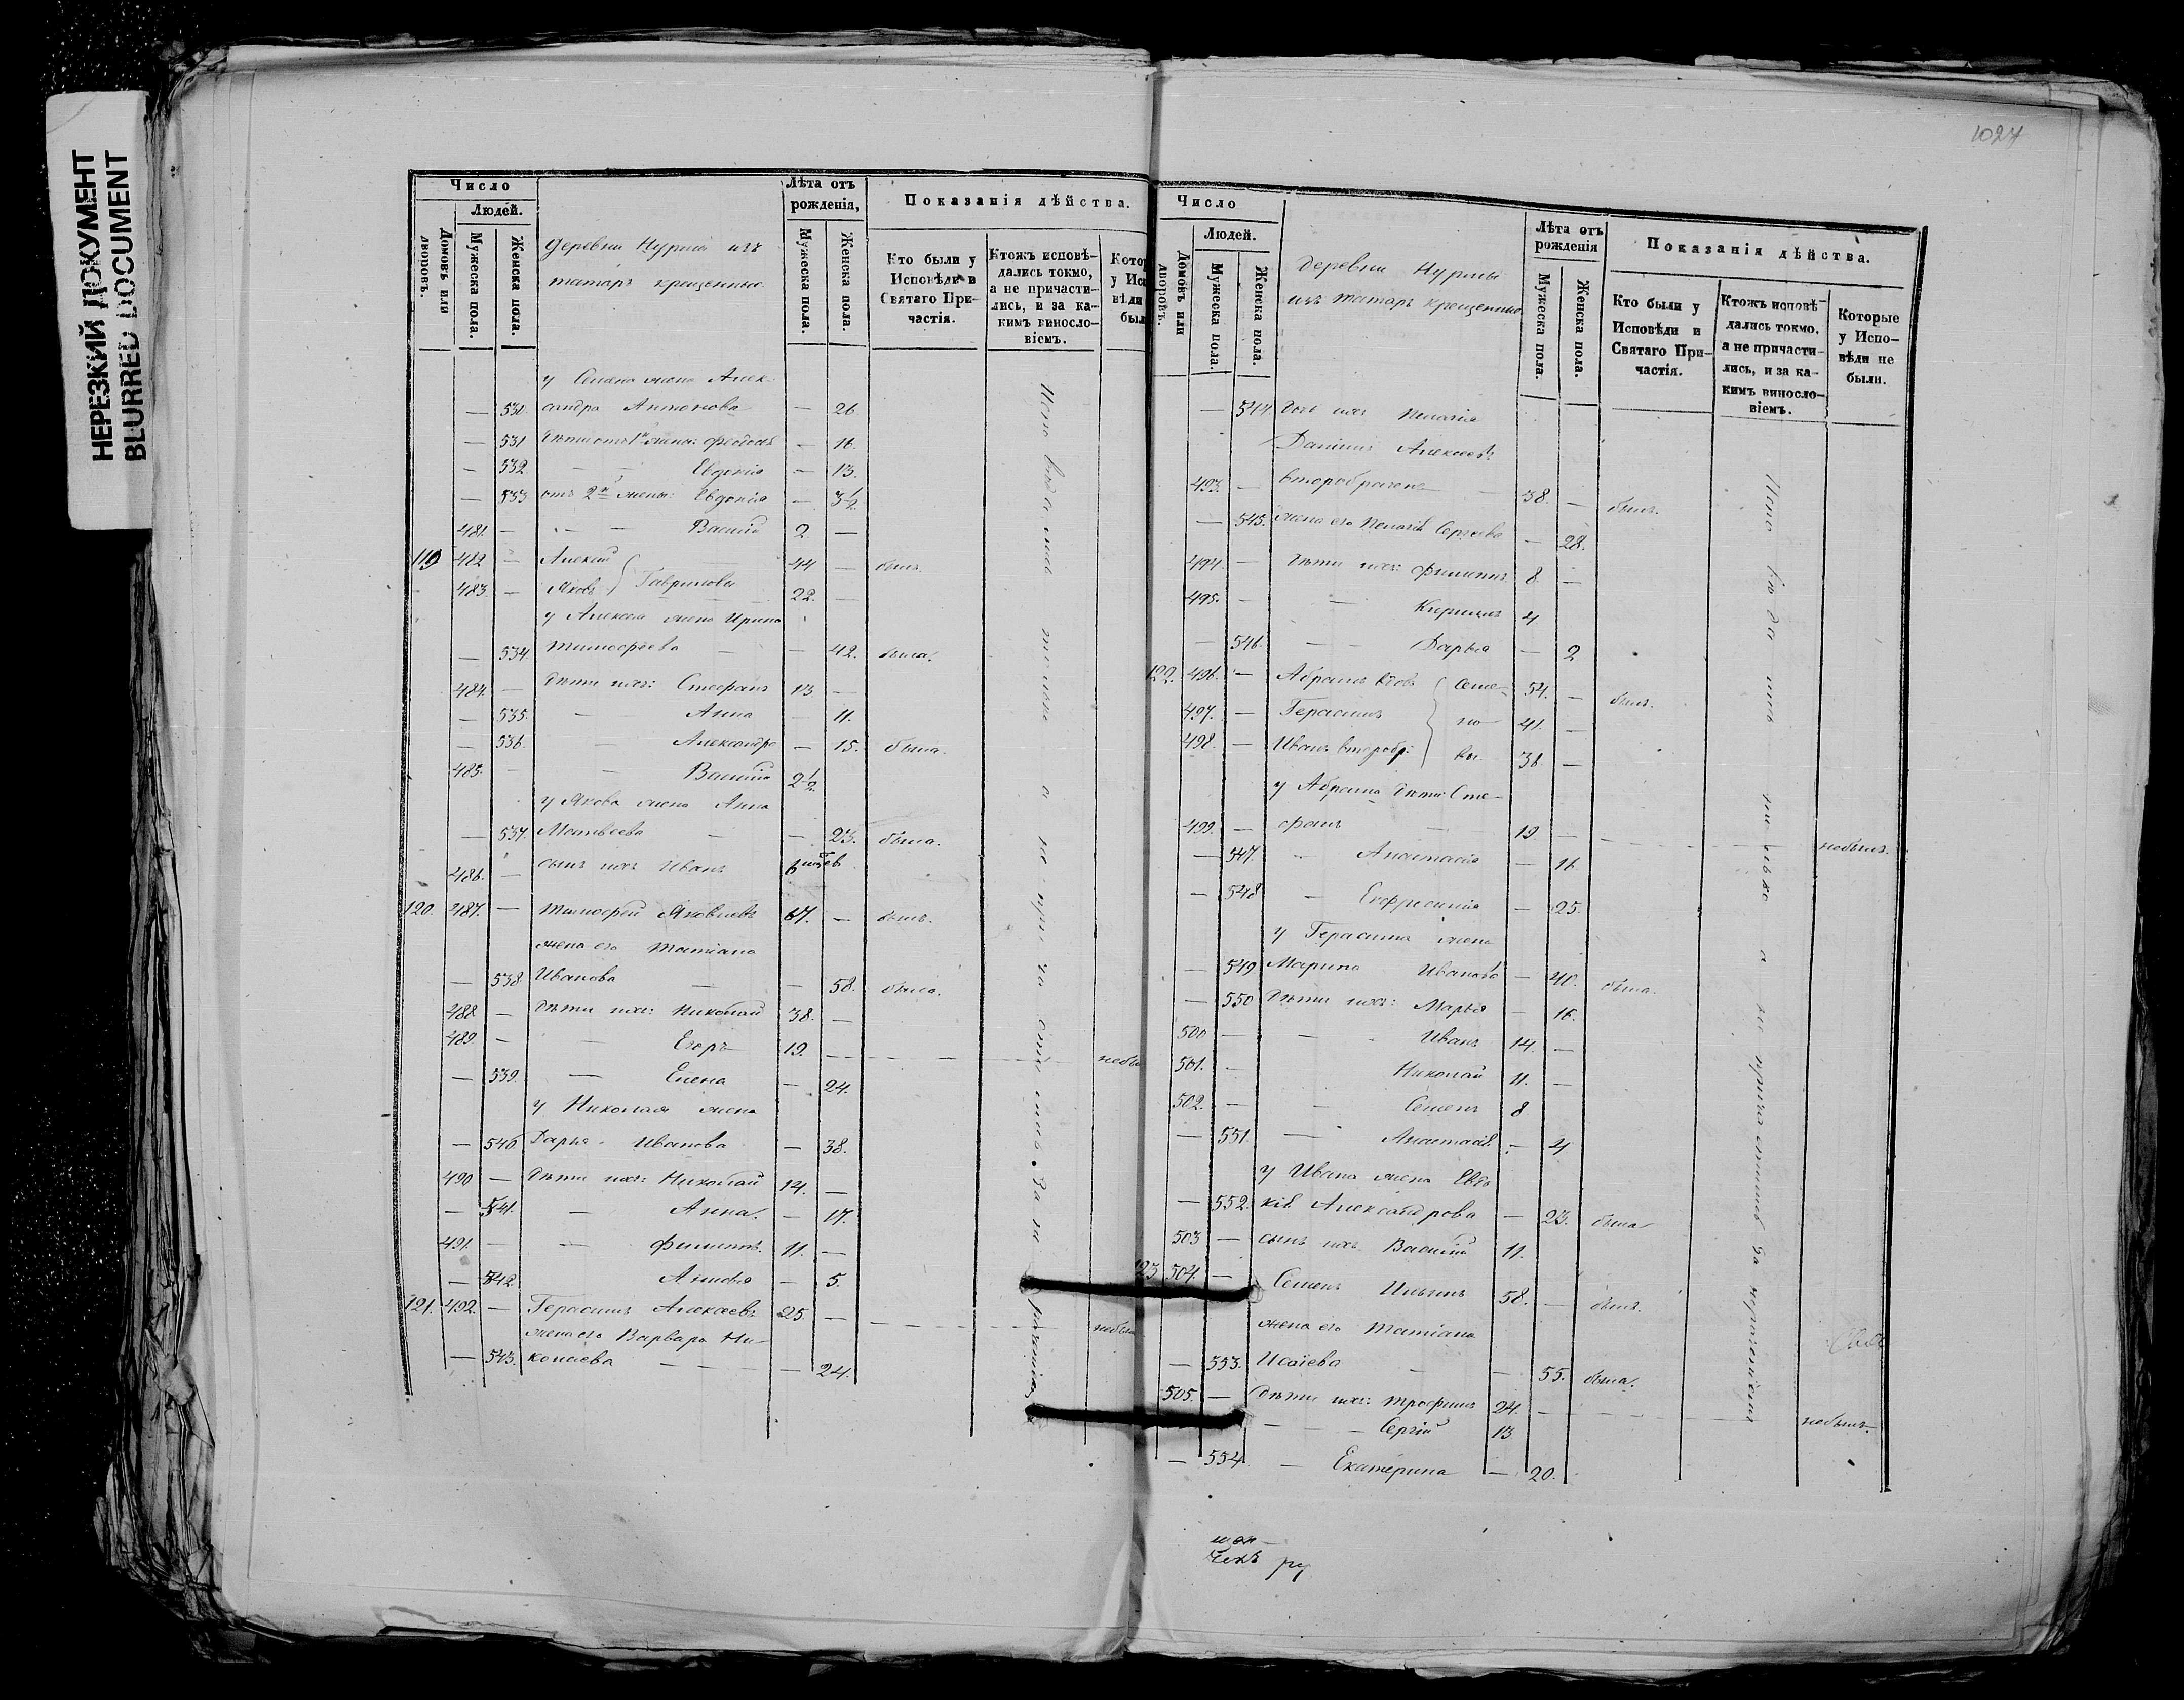 НЕРЕЗКИЙ ДОКУМЕНТ
BLURRED DOCUMENT
1027
Число
Людей.
Домовъ или дворовъ.
Мужеска пола.
Женска пола.
Деревни Нурмы изъ
татаръ крещенныхъ
Лѣта отъ рожденія,
Мужеска пола.
Женска пола.
Показанія дѣйства.
Кто были у Исповѣди и Святаго Причастія.
Ктожъ исповѣдались токмо, а не причастились, и за какимъ винословіемъ.
у Семена жена Алек-
— 530. сандра Антонова — 26
— 531 Дѣти отъ 1й жены: Феодосія — 16.
— 532. — Евдокія — 13.
— 533 отъ 2й жены: Евдокія — 3½
481. — — Василій 2 —
119 482 — Алексѣй 44 — былъ.
483. — Яковъ } Гавриловы 22. —
у Алексѣя жена Ирина
— 534. Тимофѣева — — 42. была.
484. — Дѣти ихъ: Стефанъ 13 —
— 535. — Анна — 11.
— 536. — Александра — 15. была.
485. — — Василій 2½
у Якова жена Анна
— 537. Матвѣева — — 23. была.
486. — сынъ ихъ Иванъ 6
120. 487. — Тимофей Яковлевъ 67. — былъ.
жена его Татіана
— 538 Иванова — — 58. была.
488 — Дѣти ихъ: Николай 38. —
489 — — Егоръ 19. — — — —
— 539. — Елена — 24.
у Николая жена
— 540 Дарья Иванова — 38.
490 — Дѣти ихъ: Николай 14. —
— 541. — Анна. — 17.
491. — — Филиппъ. 11. —
— 542. — 5.
121. 492. — Герасимъ Алексѣевъ 25. — — — —
жена его Варвара Ни-
— 543. колаева — — — 24.
Число
Людей.
Домовъ или дворовъ.
Мужеска пола.
Женска пола.
Деревни Нурмы
изъ татаръ крещенныхъ
Лѣта отъ рожденія
Мужеска пола.
Женска пола.
Показанія дѣйства.
Кто были у Исповѣди и Святаго Причастія.
Ктожъ исповѣдались токмо, а не причастились, и за какимъ винословіемъ.
Которые у Исповѣди не были.
— 544 Дочь ихъ Пелагія
Даніилъ Алексѣевъ
493. — второбрачн. — 38. — былъ.
— 545. жена его Пелагія Сергѣева — 28.
494. — Дѣти ихъ: Филиппъ 8. —
495. — — Кириллъ 4
— 546. — — Дарья — 2
122. 496. — Абрамъ вдовъ { Семе- 54. — былъ.
497. — Герасимъ но- 41. —
498. — Иванъ второбр: вы 36 —
у Абрама дѣти: Сте-
499. — фанъ — 19 — — — — небылъ.
— 547. — Анастасія — 11.
— 548 — Евфросинія — 25.
у Герасима жена
— 549 Марина Иванова — 40. была.
— 550 Дѣти ихъ: Марья — 16.
500 — — Иванъ 14. —
501. — Николай 11. —
502. — — Семенъ 8
— 551. — Анастасія — 4
у Ивана жена Евдо
— 552. кія Александрова — 23. была
503 — сынъ ихъ Василій 11.
123 504. — Семенъ Ильинъ 58. — былъ.
жена его Татіана
— 553. Исаіева — — 55. была.
505. — Дѣти ихъ: Трофимъ 24. — — — небылъ.
— — Сергій 13
— 554 — Екатерина — 20.